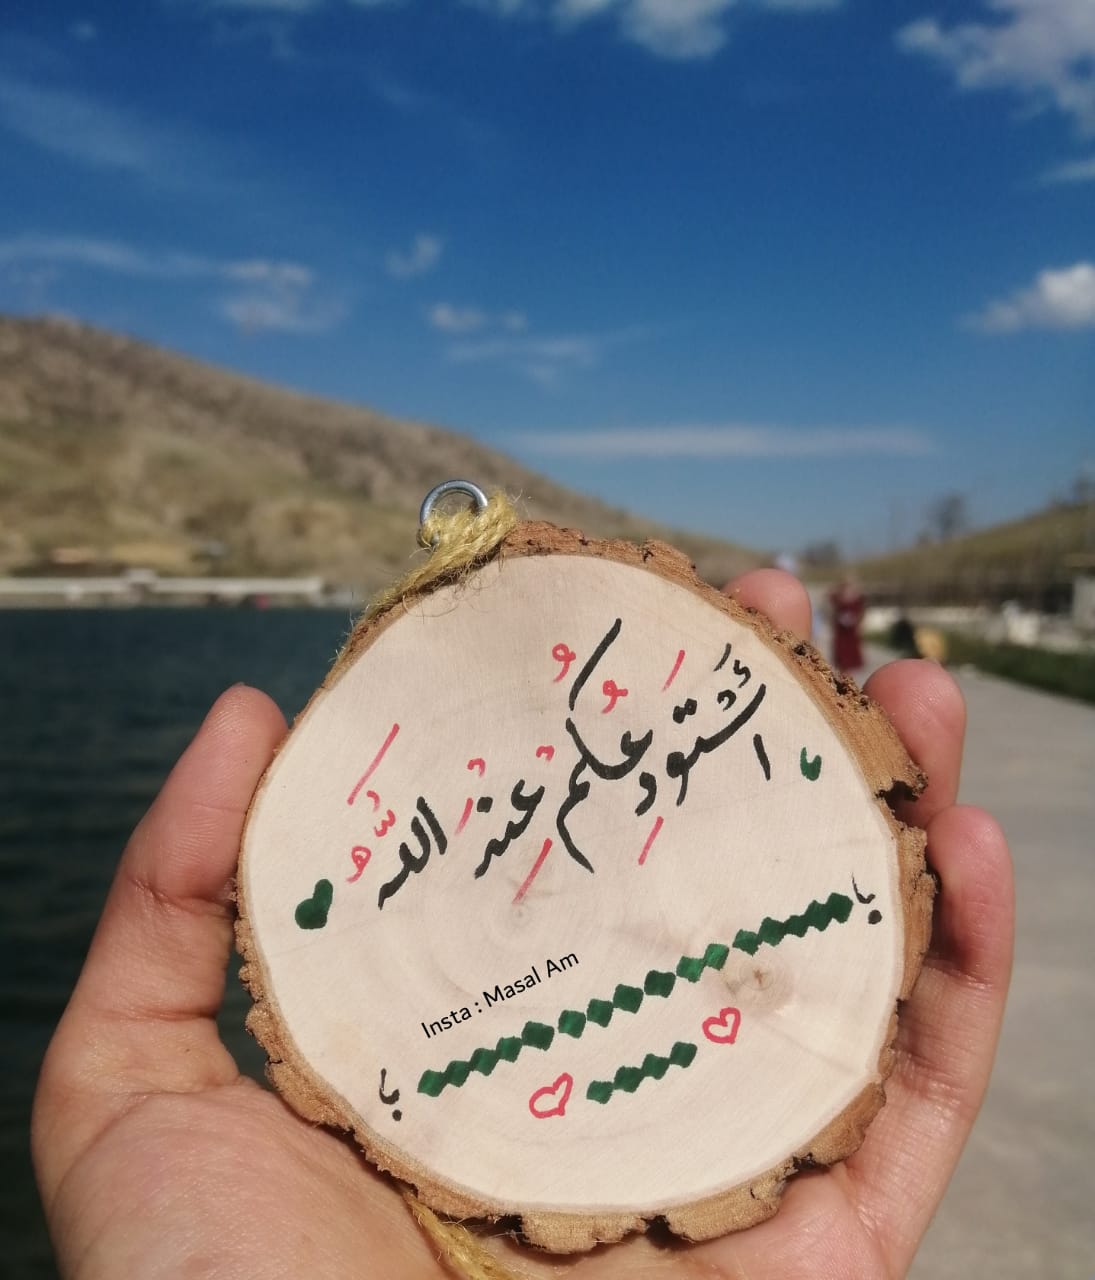 أَسْتَودِعُكُم عِنْدَ اللَّهُ
با
Insta : Masal Am
با